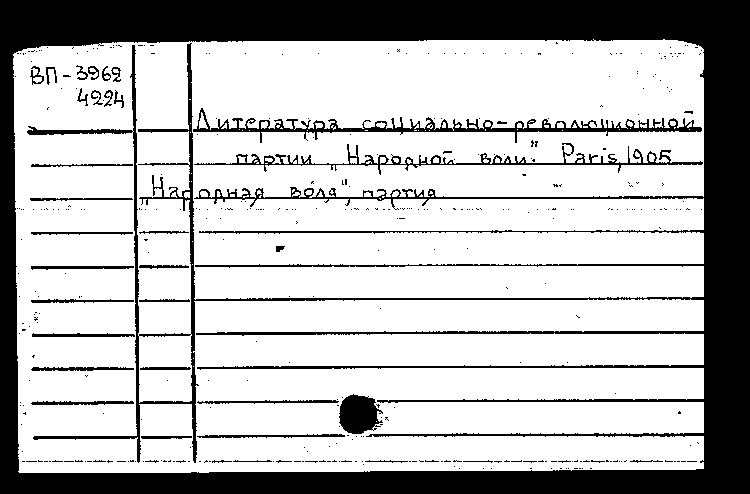 ВП-3962
4224
Литература социально-революционной
партии „Народной воли". Paris, 1905
„Народная воля", партия